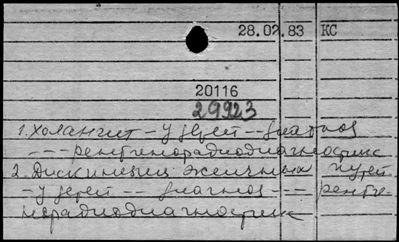 28.02.83 КС
20116
29923
1. Холангит – у детей -- диагноз
--- рентгенорадиодиагностик
2. Дискинезия желчных путей
– у детей -- диагноз --- рентге
норадиодиагностик